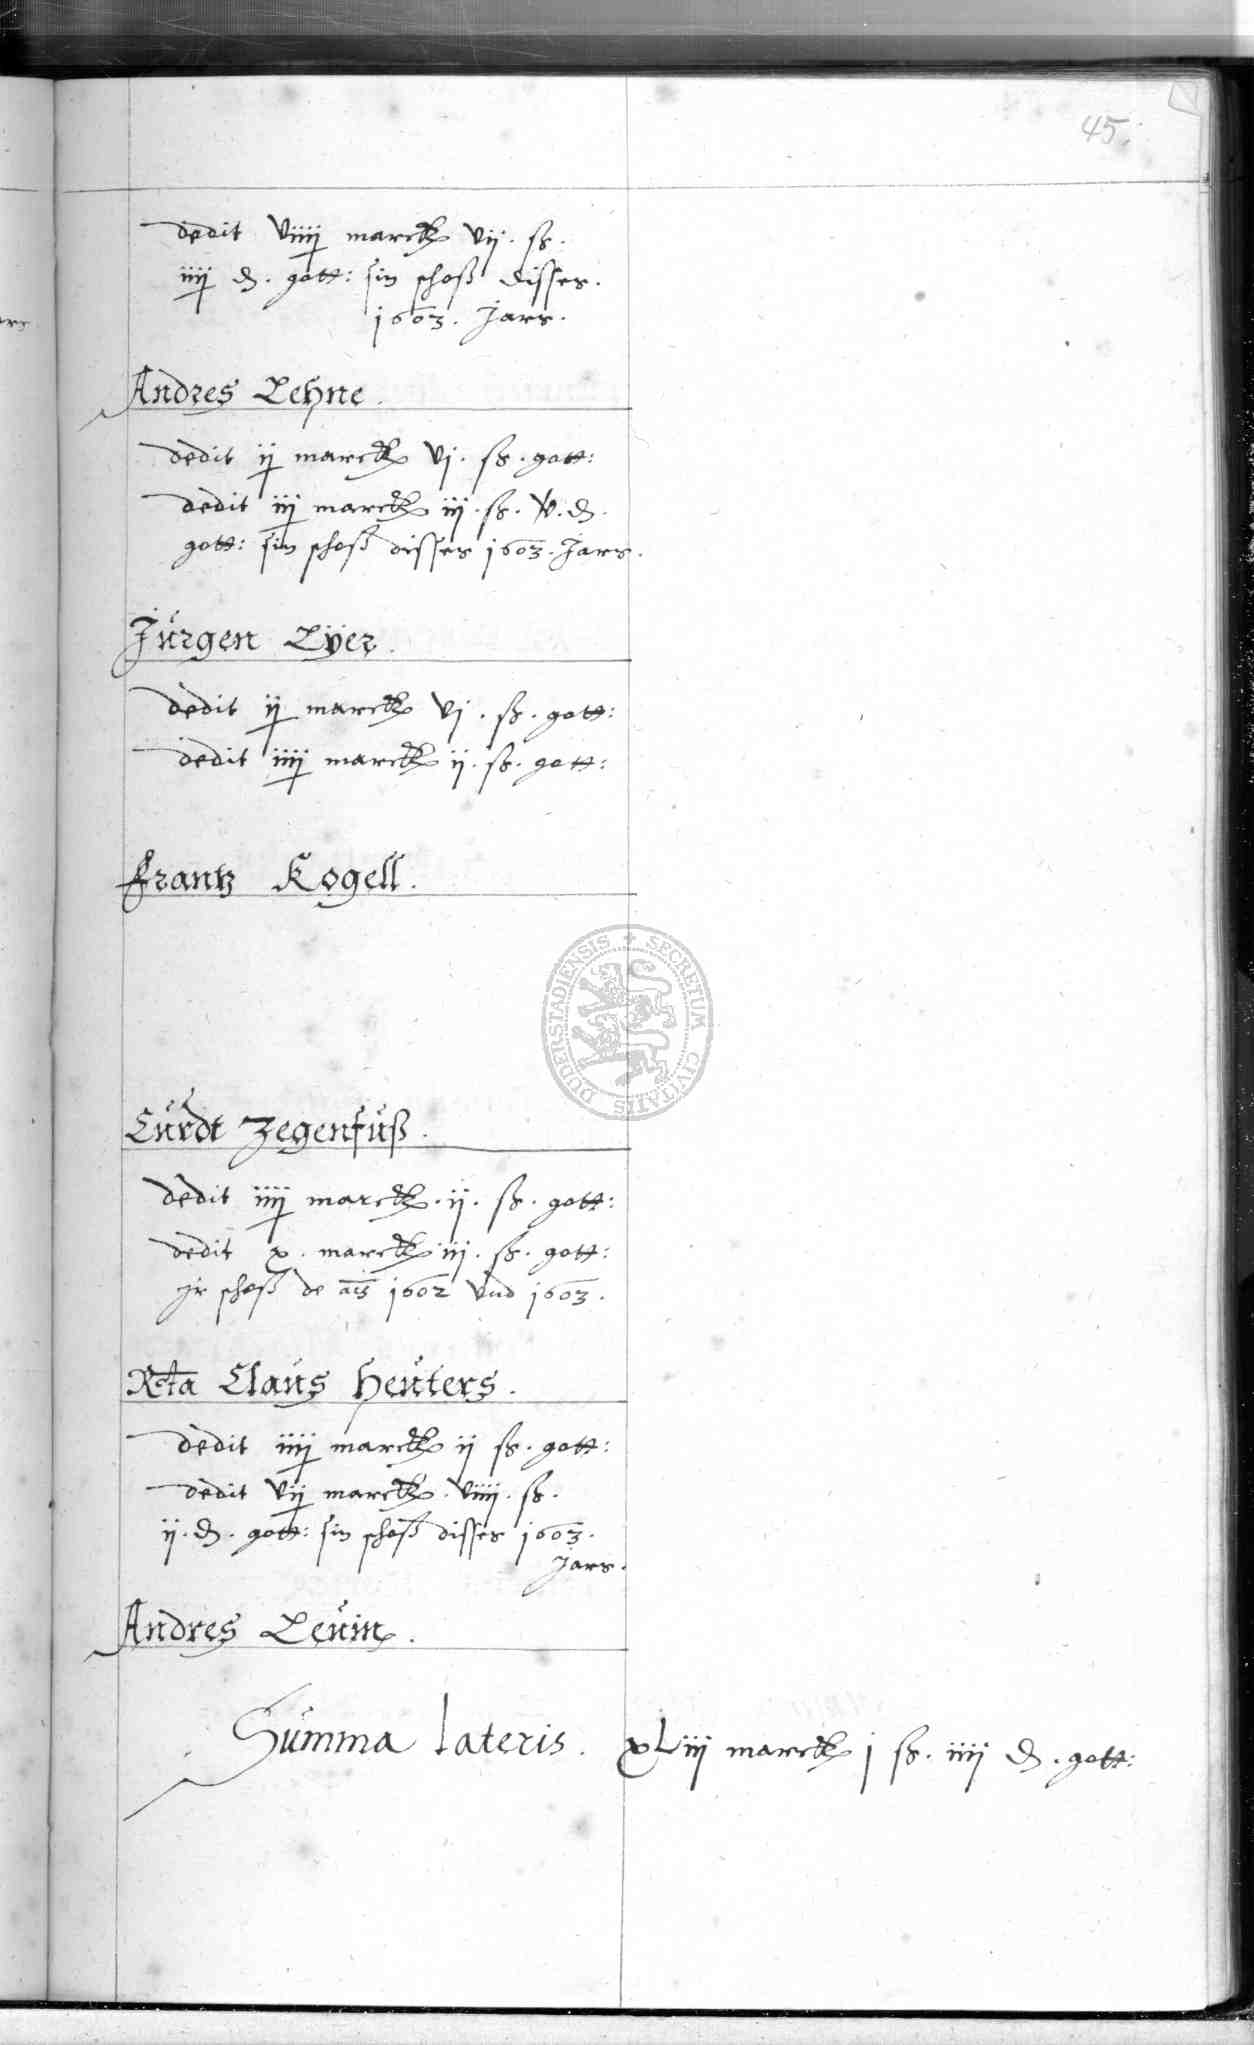 45.
dedit viiij marck vij. ß.
iiij ₰. gott: sin schoß disses.
1603. Jars.
Andres Lehne.
dedit ij marck vj. ß. gott:
dedit iij marck iij. ß. v. ₰.
gott: sin schoß disses 1603. Jars.
Jürgen Lÿer.
dedit ij marck vj. ß. gott:
dedit iiij marck ij. ß. gott:
Frantz Kogell.
DUDERSTADIENSIS SECRETUM CIVITATIS
Curdt Zegenfuß.
dedit iiij marck. ij. ß. gott:
dedit x. marck iij. ß. gott:
jr schoß de ais 1602 vnd 1603.
Rcta Claus Heuters.
dedit iiij marck ij ß. gott:
dedit vij marck. viiij. ß.
ij. ₰. gott: sin schoß disses 1603.
Jars.
Andres Leuin.
Summa lateris. xLiij marck j ß. iiij ₰. gott: